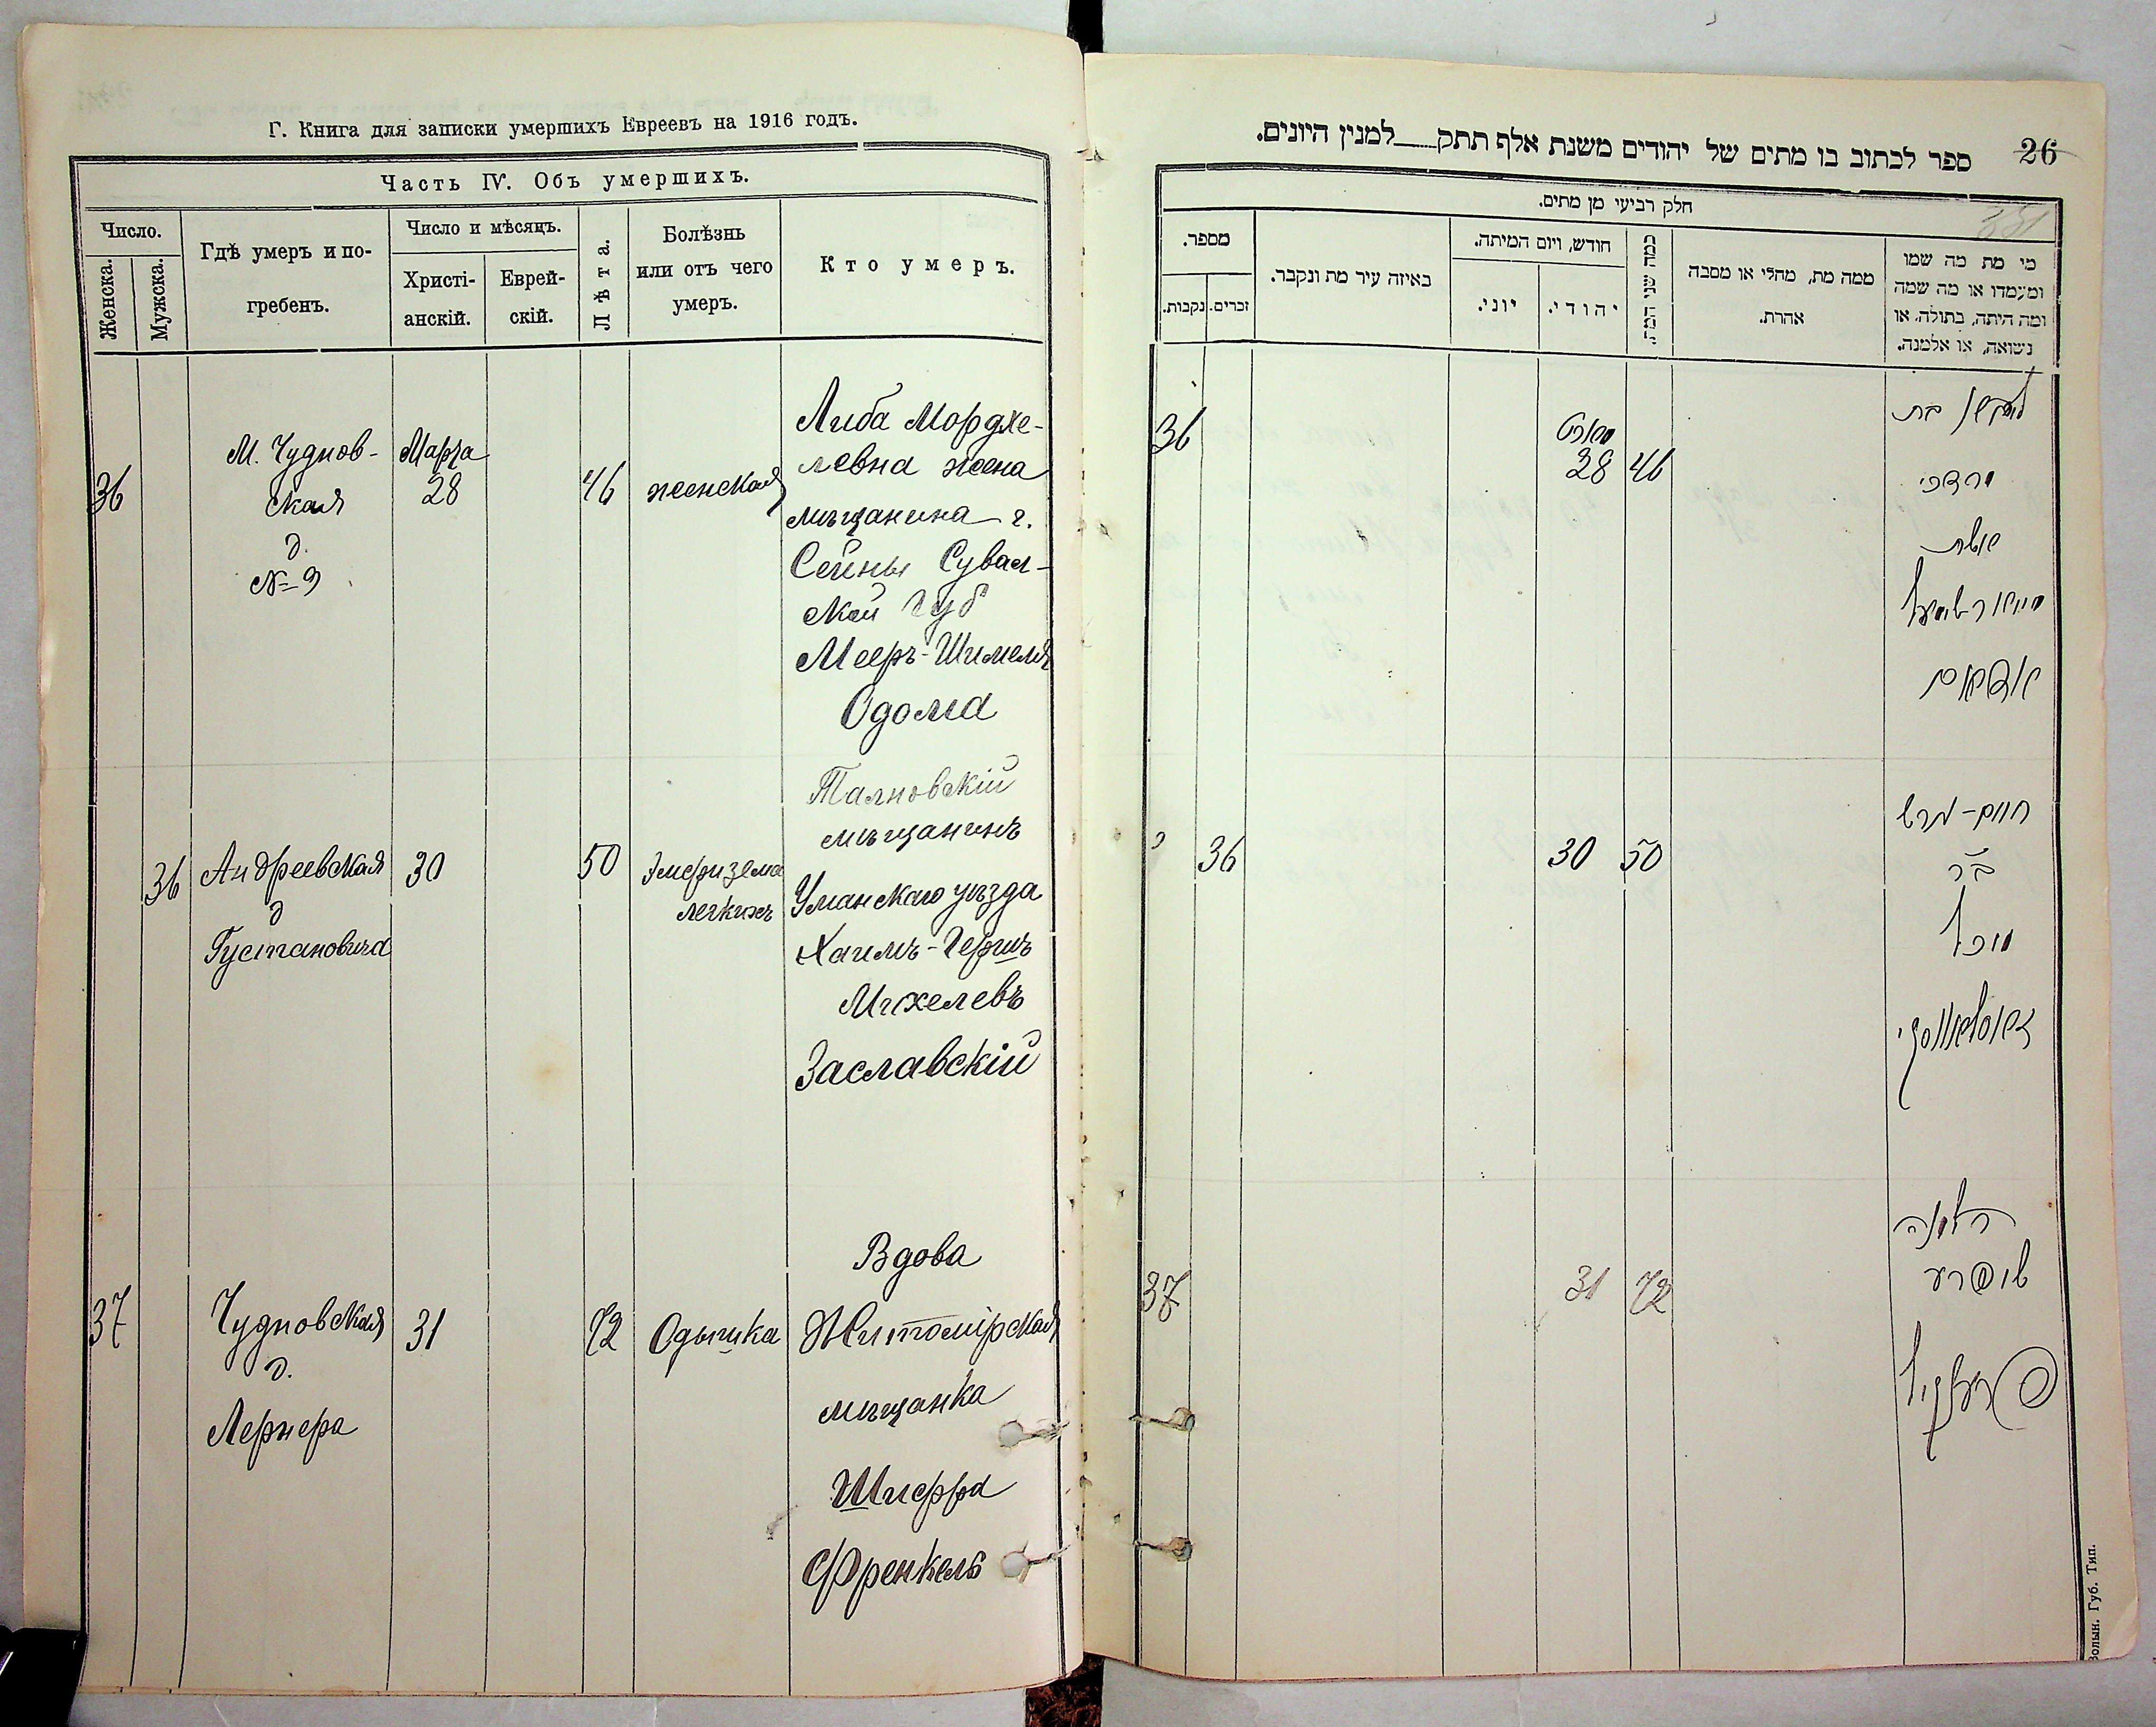 Г. Книга для записки умершихъ Евреевъ на 1916 годъ.
Часть IV. Объ умершихъ.
Число.
Женска.
Мужска.
Гдѣ умеръ и по-
гребенъ.
Число и мѣсяцъ.
Христі-
анскій.
Еврей-
скій.
Лѣта.
Болѣзнь
или отъ чего
умеръ.
Кто умеръ.
36
М. Чуднов-
ская
д.
№ 9
Марта
28
46
женская
Либа Мордхе-
левна жена
мѣщанина г.
Сейны Сувал-
ской губ
Мееръ-Шимеля
Одома
36
Андреевская
д
Густановича
30
50
Эмфизема
легкихъ
Талновскій
мѣщанинъ
Уманскаго уѣзда
Хаимъ-Гершъ
Михелевъ
Заславскій
37
Чудновская
д.
Лернера
31
72
Одышка
Вдова
Житомірская
мѣщанка
Шифра
Френкель
26
ספר לכתוב בו מתים של יהודים משנת אלף תתק למנין היונים.
חלק רביעי מן מתים.
מספר.
נקבות.
זכרים.
באיזה עיר מת ונקבר.
חודש, ויום המיתה.
יוני.
יהודי.
כמה שני המת.
ממה מת, מחלי או מסבה
אהרת.
מי מת מה שמו
ומעמדו או מה שמה
ומה היתה, בתולה, או
נשואה, או אלמנה.
36
מארט
28
46
בת
מרדכי
אשת
מייאר שימעל
36
30
50
חיים-הרש
ב"ר
מיכל
זאסלאווסקי
37
31
72
האלמנה
שיפרע
פרענקיל
Волын. Губ. Тип.